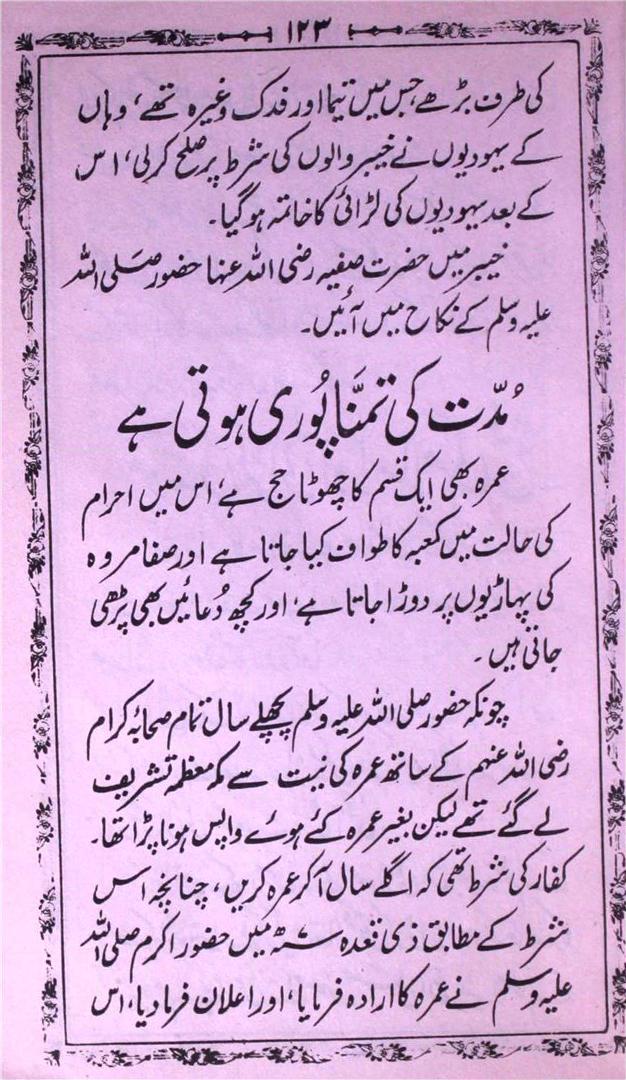 ۱۲۳
کی طرف بڑھے، جس میں تیما اور فدک وغیرہ تھے، وہاں
کے یہودیوں نے خیبر والوں کی شرط پر صلح کرلی، اس
کے بعد یہودیوں کی لڑائی کا خاتمہ ہوگیا۔
خیبر میں حضرت صفیہ رضی اللہ عنہا حضور صَلی اللہ
علیہ وسلم کے نکاح میں آئیں۔
مُدّت کی تمنَّا پُوری ہوتی ہے
عمرہ بھی ایک قسم کا چھوٹا حج ہے، اس میں احرام
کی حالت میں کعبہ کا طواف کیا جاتا ہے اور صفا مروہ
کی پہاڑیوں پر دوڑا جاتا ہے، اور کچھ دُعائیں بھی پڑھی
جاتی ہیں۔
چونکہ حضور صلی اللہ علیہ وسلم پچھلے سال تمام صحابۂ کرام
رضی اللہ عنہم کے ساتھ عمرہ کی نیت سے مکہ معظمہ تشریف
لے گئے تھے لیکن بغیر عمرہ کئے ہوئے واپس ہونا پڑا تھا۔
کفار کی شرط تھی کہ اگلے سال آکر عمرہ کریں، چنانچہ اس
شرط کے مطابق ذی قعدہ ۷ھ میں حضور اکرم صلی اللہ
علیہ وسلم نے عمرہ کا ارادہ فرمایا، اور اعلان فرما دیا، اس